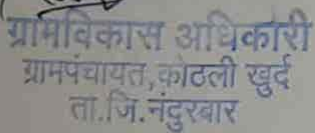 ग्रामविकास अधिकारी
ग्रामपंचायत,कोठली खुर्द
ता.जि.नंदुरबार